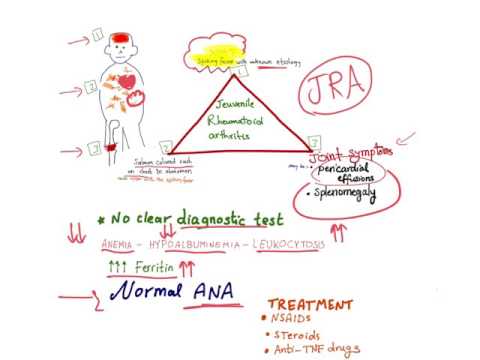 1
2
3
Spiking fever with unknown etiology
1
JRA
Jeuvenile
Rheumatoid
arthritis
2
3
Salmon colored rash
on chest to abdomen
Joint symptoms
may be:
• pericardial
effusions
• Splenomegaly
* No clear diagnostic test
ANEMIA - HYPOALBUMINEMIA - LEUKOCYTOSIS
↑↑↑ Ferritin ↑↑
Normal ANA
TREATMENT
• NSAIDs
• STeroids
• Anti-TNF drugs